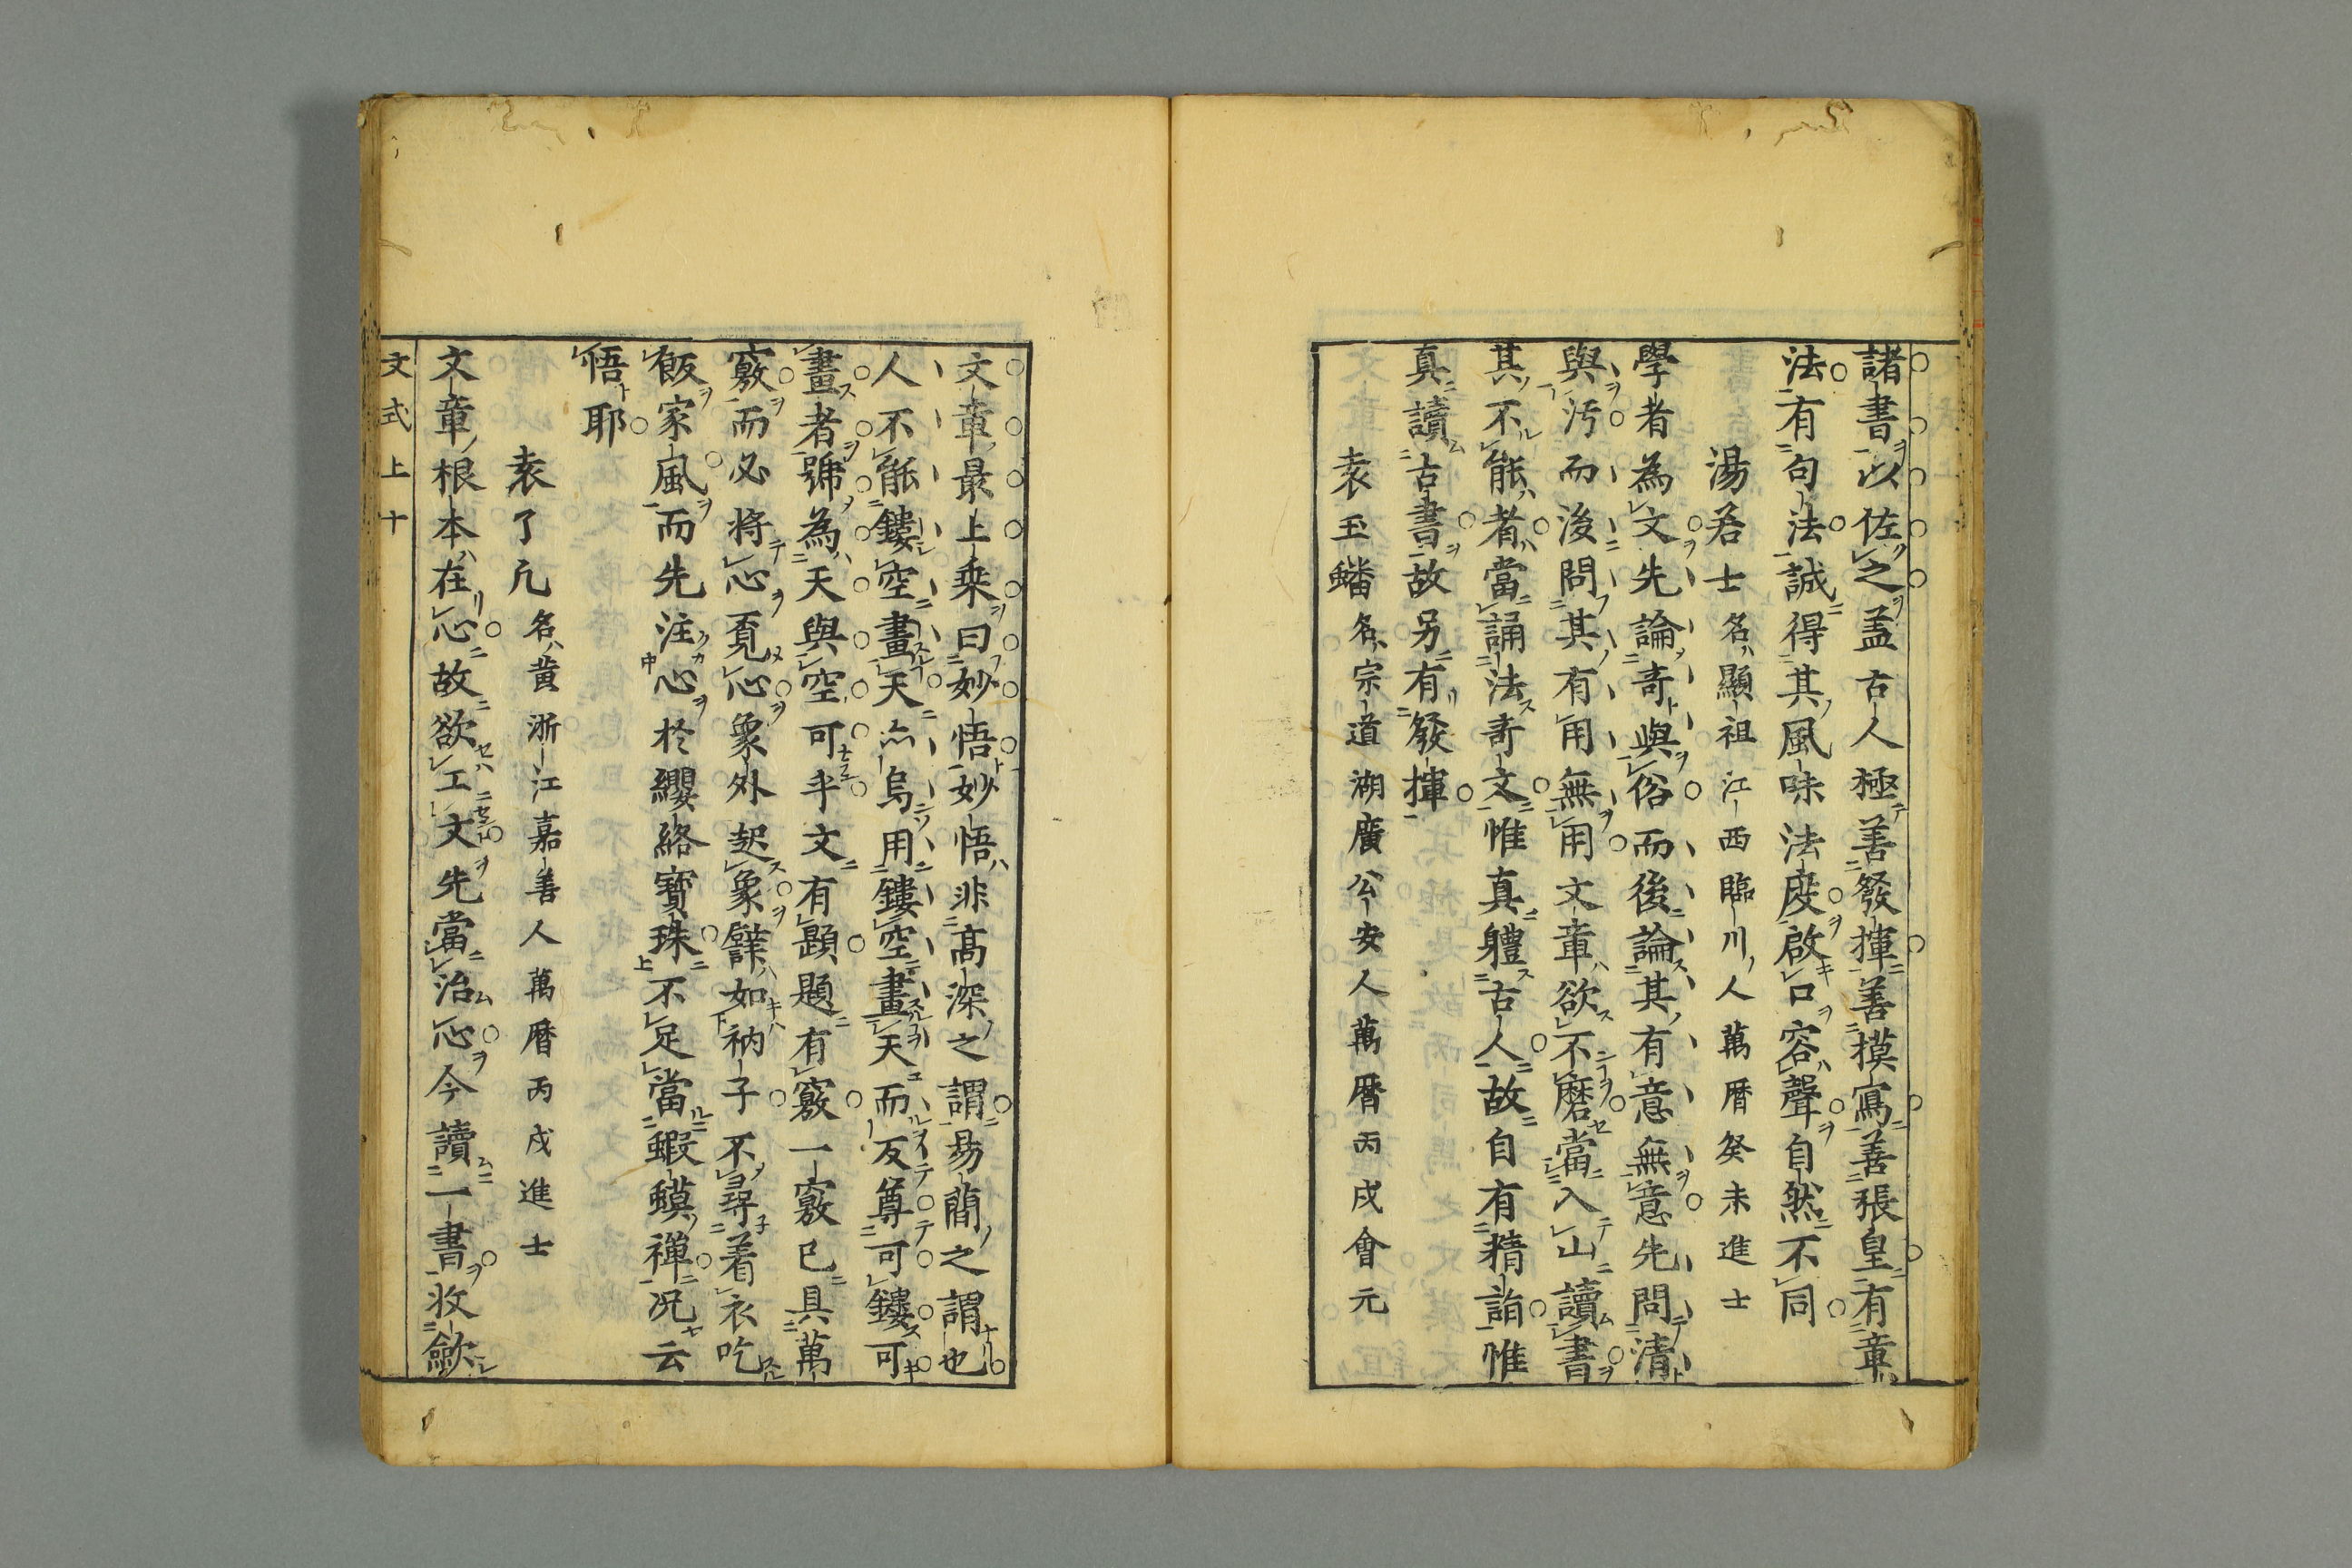 諸書以佐之盖古人極善發揮善摸寫善張皇有章
法有句法誠得其風味法度啟口容聲自然不同
湯若士名顯祖江西臨川人萬曆癸未進士
學者為文先論奇與俗而後論其有意無意先問清
與汚而後問其有用無用文章欲不磨當入山讀書
其不能者當誦法奇文惟真體古人故自有精詣惟
真讀古書故另有發揮
袁玉蟠名宗道湖廣公安人萬曆丙戌會元
文章最上乘曰妙悟妙悟非高深之謂易簡之謂也
人不能鏤空畫天亦烏用鏤空畫天而反尊可鏤可
畫者號為天與空可乎文有題題有竅一竅已具萬
竅而必將心覓心象外起象譬如衲子不尋着衣吃
飯家風而先注心於纓絡寶珠不足當蝦蟆禪况云
悟耶
袁了凡名黄浙江嘉善人萬曆丙戌進士
文章根本在心故欲工文先當治心今讀一書收歛
文式上十